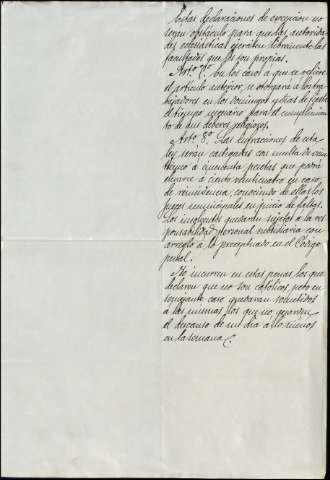 Estas declaraciones de excepcion no
seran obstáculo para que las autorida-
des eclesiásticas ejerciten libremente las
facultades que les son propias.
Artº 7º. En los casos a que se refiere
el artículo anterior, se otorgará a los tra-
bajadores en los domingos y dias de fiesta
el tiempo necesario para el cumplimien-
to de sus deberes religiosos.
Artº 8º Las infracciones de esta
ley serán castigadas con multa de vein-
ticinco á cincuenta pesetas que podrá
elevarse á ciento veinticinco en caso
de reincidencia, conociendo de ellas los
jueces municipales en juicio de faltas.
Los insolventes quedarán sujetos a la res-
ponsabilidad personal subsidiaria con
arreglo a lo preceptuado en el Código
penal.
No incurren en estas penas los que
declaren que no son católicos, pero en
semejante caso quedarán sometidos
a las mismas los que no guarden
el descanso de un dia a lo menos
en la semana.